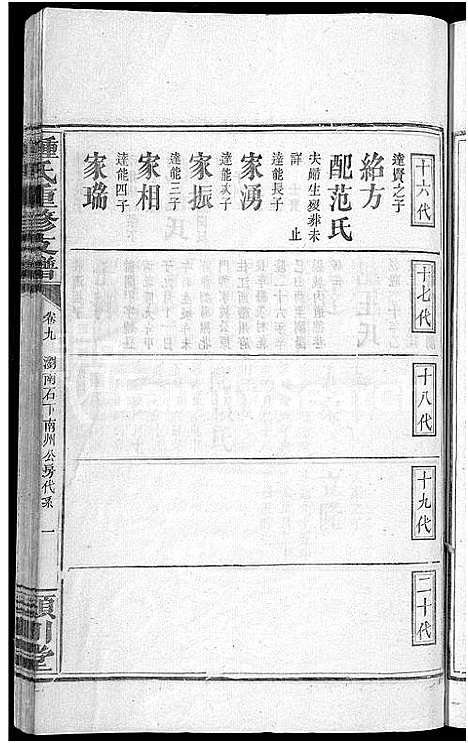 十六代
達賢之子
紹方
配范氏
夫婦生歿葬未
詳 止
達能長子
家湧
達能次子
家振
達能三子
家相
達能四子
家瑞
十七代
十八代
十九代
二十代
鍾氏重修支譜
卷九 瀏南石下南州公房代系 一
潁川堂